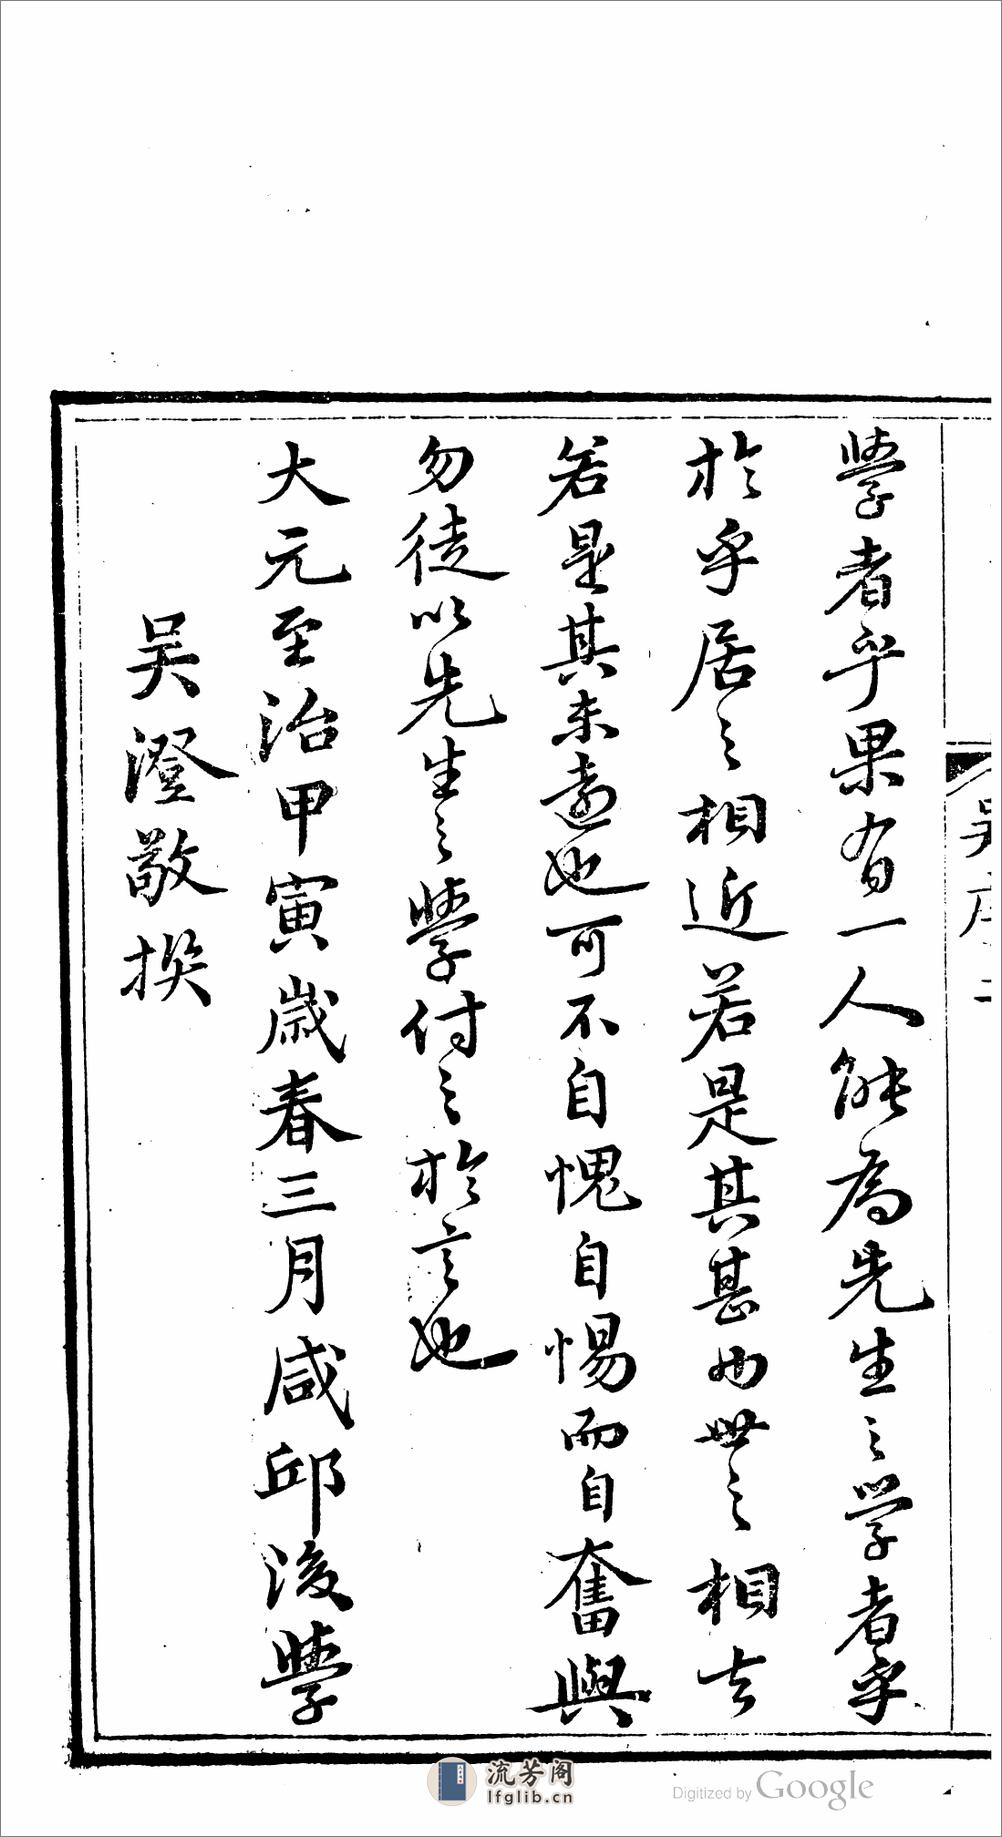 吳序 二
學者乎果有一人能為先生之學者乎
於乎居之相近若是其甚也世之相去
若是其未遠也可不自愧自惕而自奮與
勿徒以先生之學付之於言也
大元至治甲寅歲春三月咸邱後學
吳澄敬撰
流芳阁
lfglib.cn
Digitized by Google